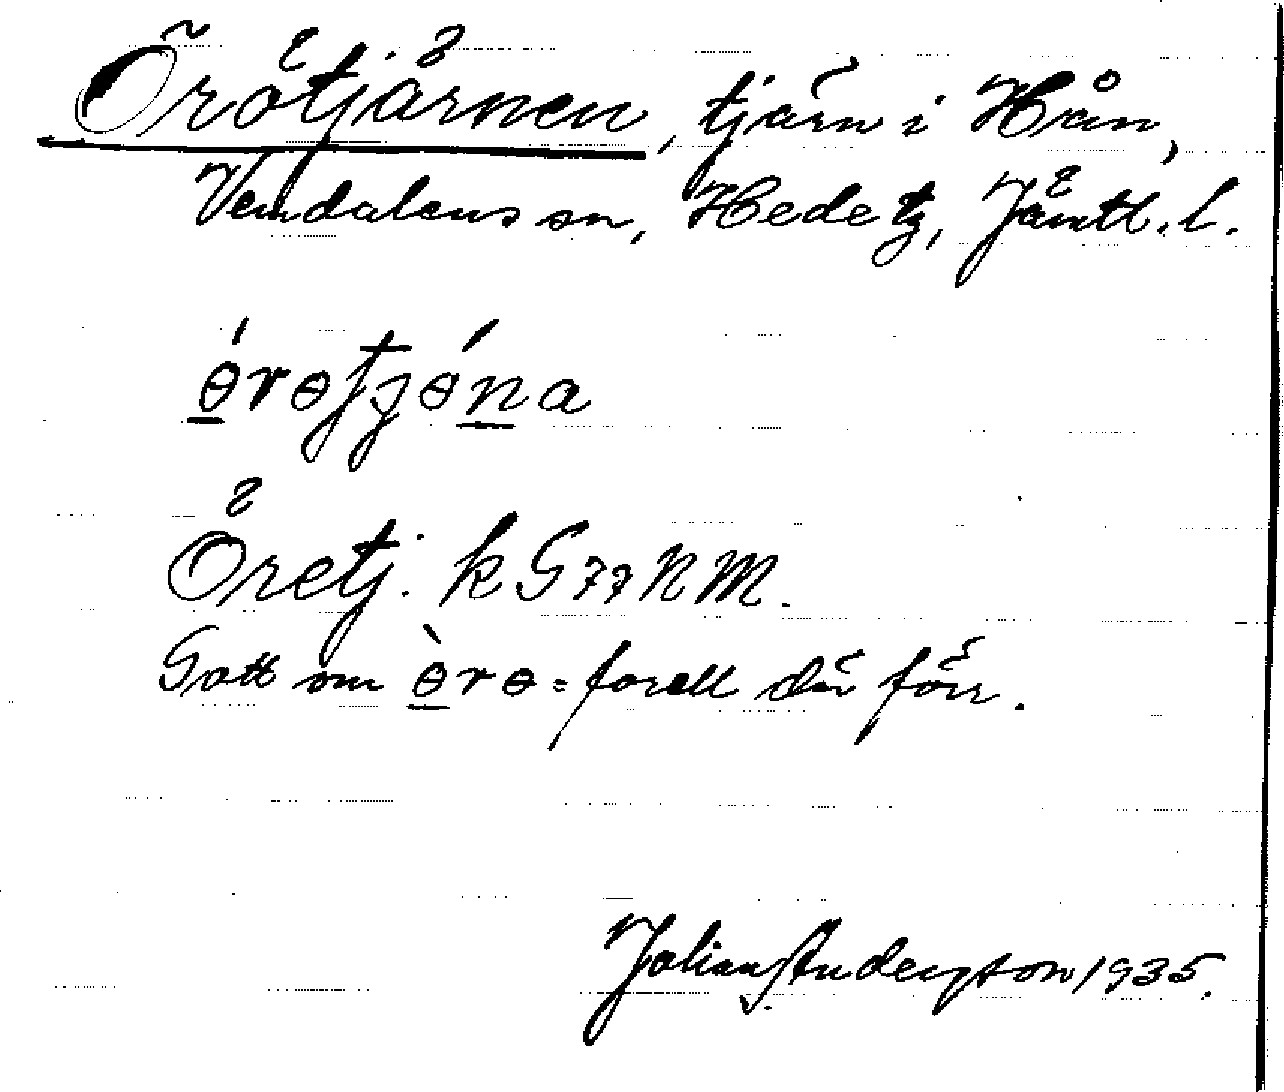 Örötjärnen, tjärn i Hån,
Vemdalens sn, Hede tg, Jämtl. l.
ɵ́rɵtjɵ́na
Öretj. k G 77 N M.
Gott om ɵ̀rɵ = forell där förr.
Andersson 1935.